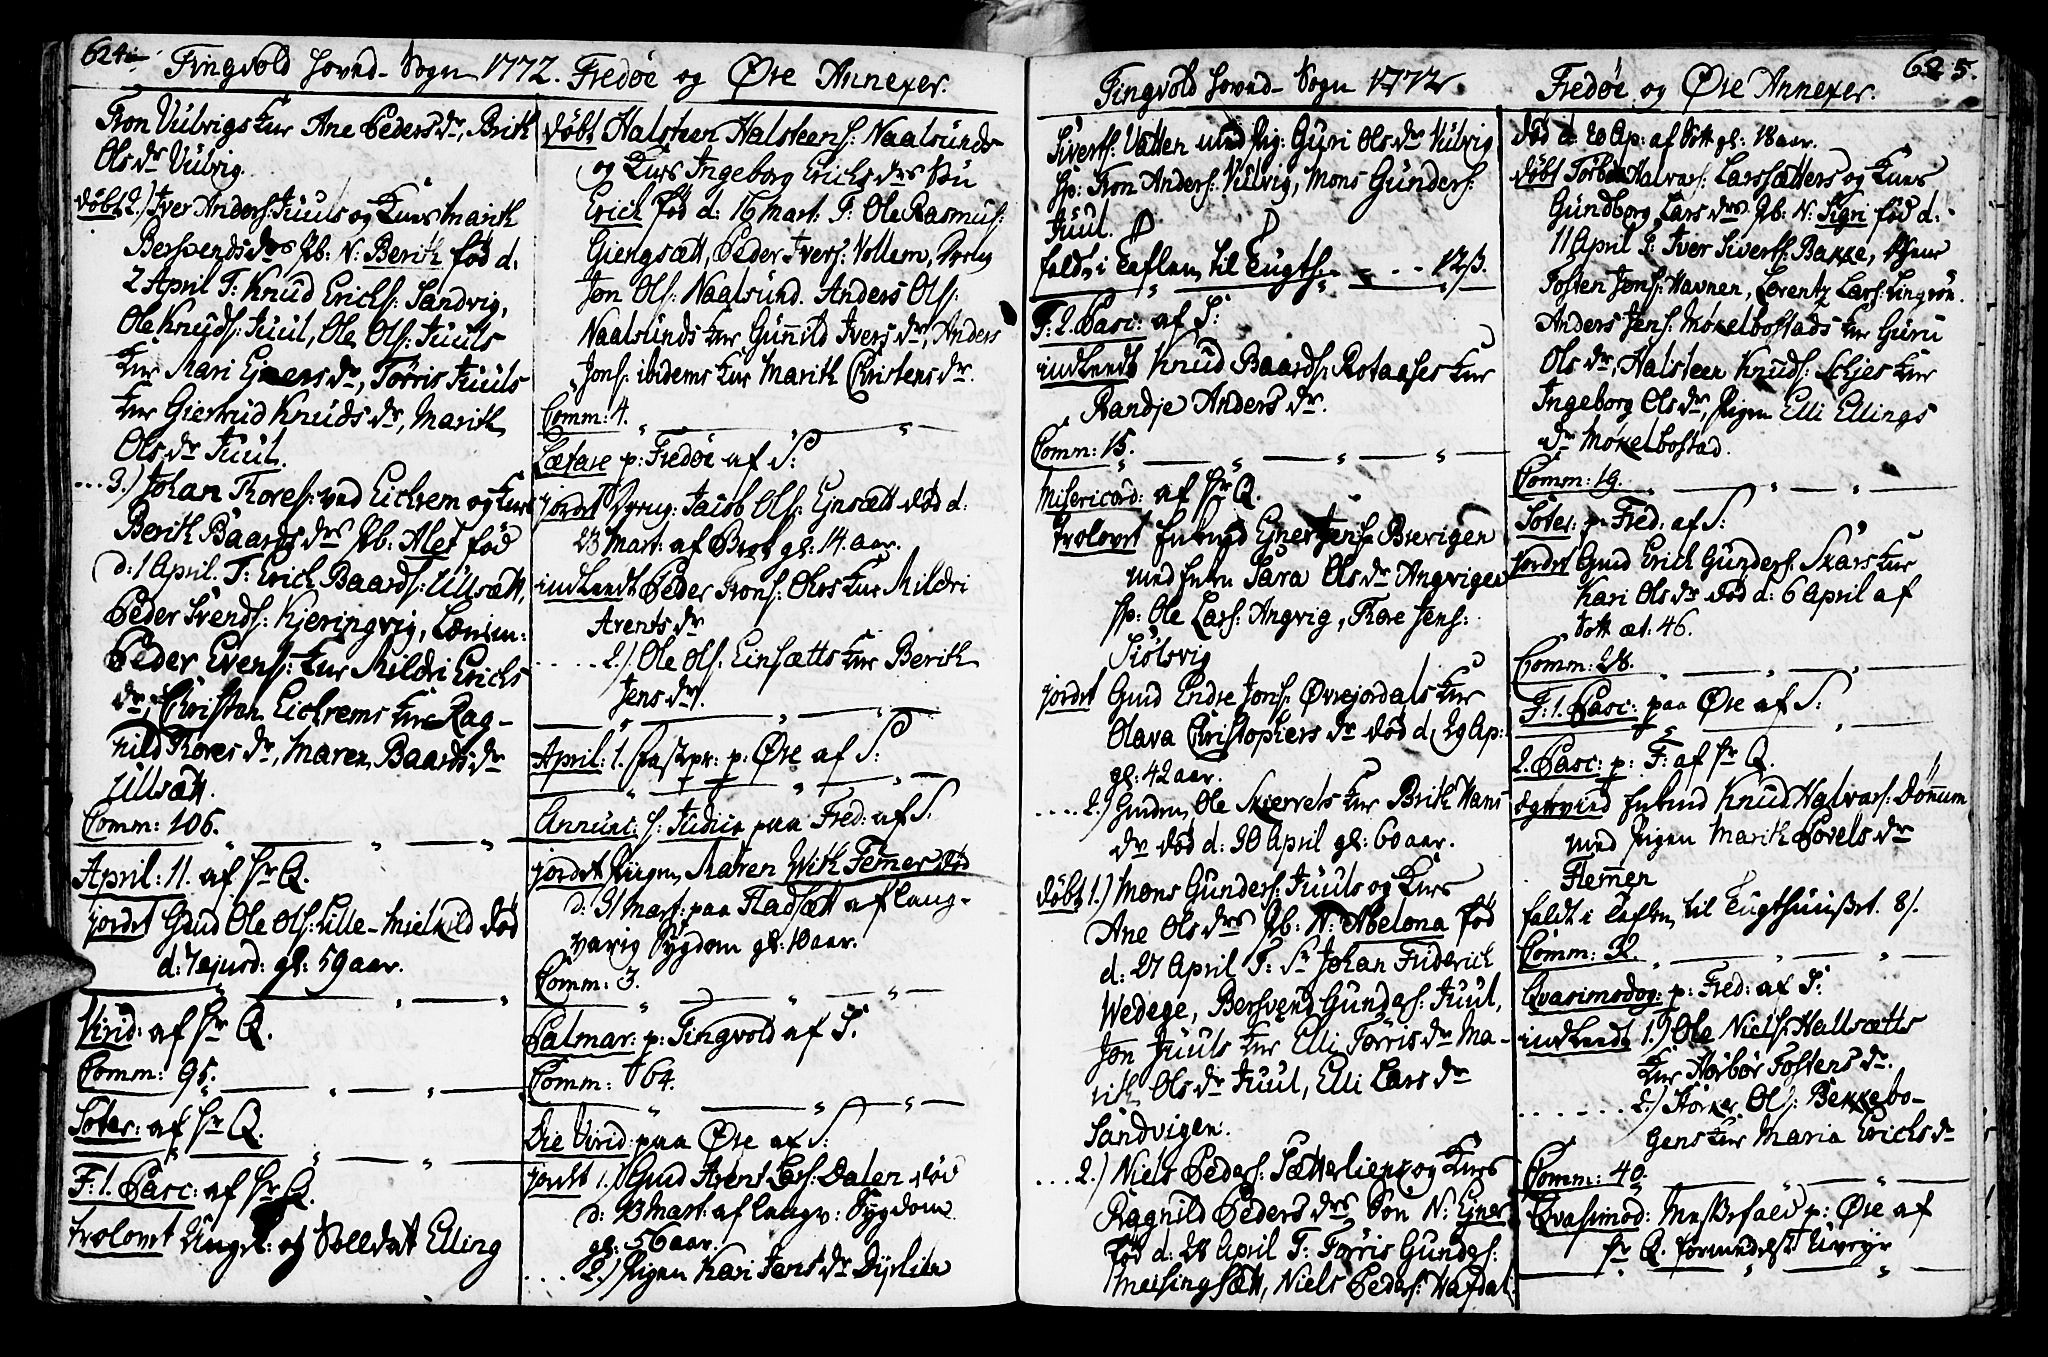 624.
Tingvold Hoved-Sogn 1772. Fredøe og Øre Annexer.
Tron Vulvigs Kur Ane Peders dr, Brith
Ols dr Vulvig.
døbt 2.) Iver Anders: Juuls og Kurs Marith
Berspends drs Pb: N: Berith fød d:
2 April T: Knud Erichs: Sandvig,
Ole Knuds: Juul, Ole Ols: Juuls
Kur Mari Ejners dr, Tørris Juuls
Kur Giertrud Knuds dr, Marith
Ols dr Juul.
...3.) Johan Thores: ved Eichrem og Kurs
Berith Baards drs Pb: Alet fød
d: 1 April. T: Erich Baards: Ullsætt,
Peder Svends: Kjeringvig,
Peder Evens: Kur Mildri Erichs
dr, Christen Eichrems Kur Rag-
nild Thores dr, Maren Baards dr
Ullsætt.
Comm: 106.
April: 11. af Hr Q.
jordet Gmd Ole Ols: Lille-Mielkild død
d: 7 ejusd: gl: 59 aar.
Virid: af Hr Q.
Comm: 95.
Soter: af Hr Q.
F: 1. Pasc: af Hr Q.
trolovet Ungk: og Solldat Elling
døbt Halsteen Halsteens: Naalsunds
og Kurs Ingeborg Erichs drs Søn
Erich fød d: 16 Mart: T: Ole Rasmus:
Giengsætt, Peder Ivers: Vollem,
Jon Ols: Naalsund. Anders Ols:
Naalsunds Kur Gunnild Ivers dr, Anders
Jons: ibidems Kur Marith Christens dr.
Comm: 4.
Lætare p: Fredøe af S:
jordet Jacob Ols: Ejnsætt død d:
23 Mart: af Brst gl: 14 aar.
indleedt Peder Trons: Ohrs Kur Mildri
Arents dr
.....2.) Ole Ols: Einsætts Kur Berith
Jens dr.
April: 1. Fastepr: p: Øre af S:
Annunc: s: Judica paa Fred: af S.
jordet Piigen Maren With Femer død
d: 31 Mart: paa Fladsætt af lang-
varig Sygdom gl: 18 aar.
Comm: 3.
Palmar: p: Tingvold af S.
Comm: 164.
Die Virid: paa Øre af S:
jordet 1.) Gmd Arent Lars: Dalen død
d: 23 Mart: af langv: Sygdom
gl: 56 aar.
....2.) Pigen Kari Jens dr
625.
Tingvold Hoved-Sogn 1772. Fredøe og Øre Annexer.
Siverts: Vatten med Pig: Guri Ols dr Vulvig
Sp: Tron Anders: Vulvig, Mons Gunders:
Juul.
faldt i Taflen til Tugth: - - .. 12 ß.
F: 2. Pasc: af S:
indleedt Knud Baards: Rotaases Kur
Randje Anders dr.
Comm: 15.
Misericord: af Hr Q.
trolovet Enkmd Ejner Jens: Bierigen
med Enken Sara Ols dr Angvigen
sp: Ole Lars: Angvig, Tore Jens:
Siølsvig
jordet Gmd Endre Jons: Øvrejordals Kur
Olava Christophers dr død d: 29 Ap:
gl: 42 aar.
....2.) Gmden Ole Skierrels Kur Brith Hans
dr død d: 30 April gl: 60 aar.
døbt 1.) Mons Gunders: Juuls og Kurs
Ane Ols drs Pb: N: Abelona fød
d: 27 April T: Sr Johan Friderich
Wedege, Bersvend Gunders: Juul,
Jon Juuls Kur Elli Tørris dr Ma-
rith Ols dr Juul, Elli Lars dr
Sandvigen.
...2.) Niels Peders: Sætterliens og Kurs
Ragnild Peders drs Søn N: Ejner
fød d: 28 April T: Tørris Gunders:
Meisingsætt, Niels Peders: Hafdal.
død d: 20 Ap: af Sott gl: 18 aar.
døbt Torbiør Halvars: Larssætters og Kurs
Gundborg Lars drs Pb: N: Sigri fød d:
11 April T: Iver Siverts: Bakke,
Tosten Jons: Havnen, Lorentz Lars: Lingvøn.
Anders Jens: Møkelbostads Kur Guru
Ols dr, Halsteen Knuds: Schjes Kur
Ingeborg Ols dr, Pigen Elli Ellings
dr Møkelbostad.
Comm: 19.
Soter: p: Fred: af S:
jordet Gmd Erich Gunders: Skars Kur
Kari Ols dr død d: 6 April af
Sott æt: 46.
Comm: 28.
F: 1. Pasc: paa Øre af S:
2. Pasc: p: F: af Hr Q.
ægtevied Enkmd Knud Halvars: Dønnum
med Pigen Marith Povels dr
Flemmen
faldt i Taflen til Tugthuußet. 8 ß.
Comm: 32.
Qvasimodog: p: Fred: af S:
indleedt 1.) Ole Niels: Hallsætts
Kur Tostens dr.
......2.) Størker Ols: Bekkebo-
gens Kur Maria Erichs dr
Comm: 40.
Qvasimod: Messefald p: Øre af
Hr Q. formedelst Uveyr